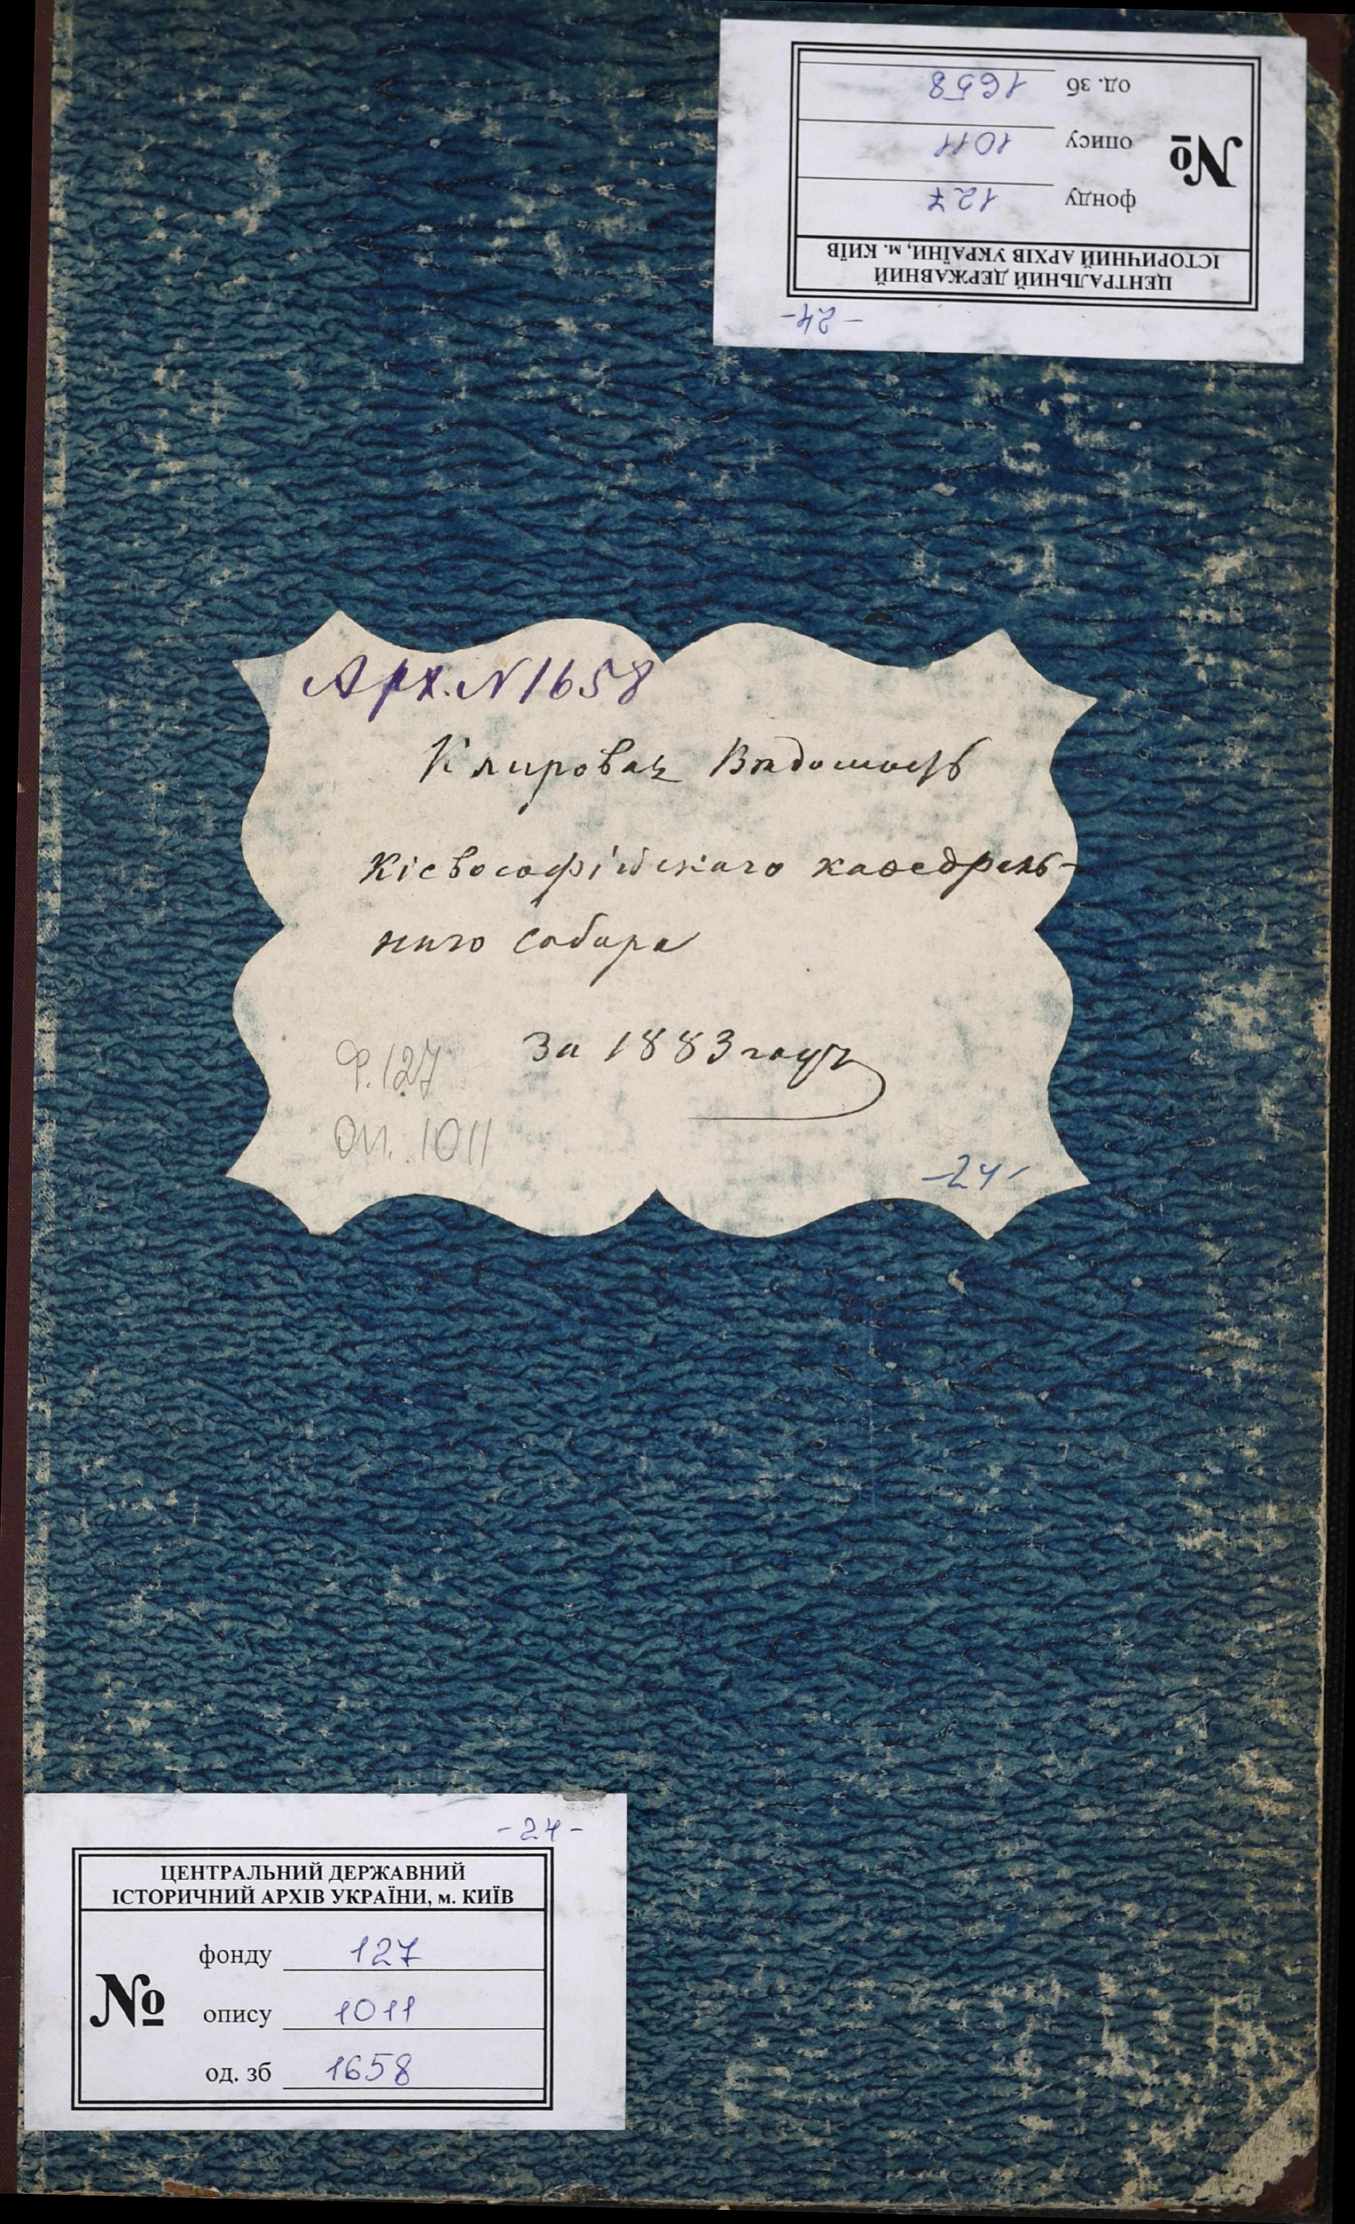 -24-
ЦЕНТРАЛЬНИЙ ДЕРЖАВНИЙ
ІСТОРИЧНИЙ АРХІВ УКРАЇНИ, м. КИЇВ
№
фонду 127
опису 1011
од. зб 1658
Арх. N 1658
Клировая Вѣдомость
Кіевософійскаго каѳедраль-
наго Собора
За 1883 годъ
Ф. 127
Оп. 1011
-24-
-24-
ЦЕНТРАЛЬНИЙ ДЕРЖАВНИЙ
ІСТОРИЧНИЙ АРХІВ УКРАЇНИ, м. КИЇВ
№
фонду 127
опису 1011
од. зб 1658